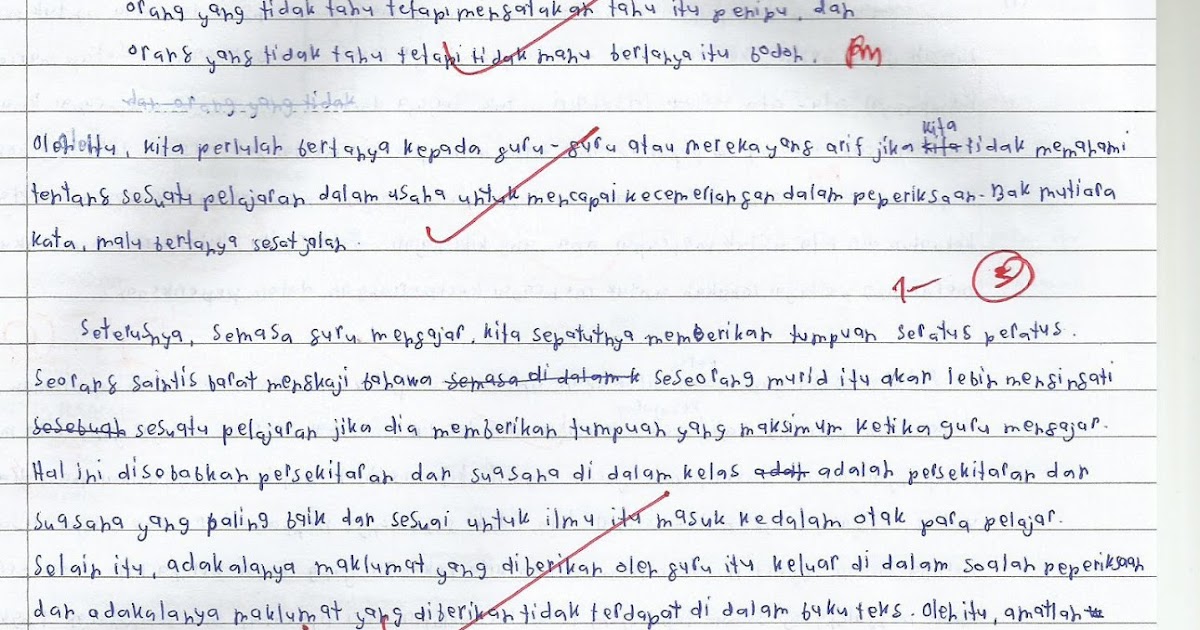 orang yang tidak tahu tetapi mengatakan tahu itu penipu, dan
orang yang tidak tahu tetapi tidak mahu bertanya itu bodoh.
dan orang yang tidak
Oleh itu, kita perlulah bertanya kepada guru-guru atau mereka yang arif jika kita kita tidak memahami
tentang sesuatu pelajaran dalam usaha untuk mencapai kecemerlangan dalam peperiksaan. Bak mutiara
kata, malu bertanya sesat jalan.
Seterusnya, semasa guru mengajar, kita sepatutnya memberikan tumpuan seratus peratus.
Seorang saintis barat mengkaji bahawa semasa di dalam k seseorang murid itu akan lebih mengingati
sesebuah sesuatu pelajaran jika dia memberikan tumpuan yang maksimum ketika guru mengajar.
Hal ini disebabkan persekitaran dan suasana di dalam kelas adah adalah persekitaran dan
suasana yang paling baik dan sesuai untuk ilmu itu masuk kedalam otak para pelajar.
Selain itu, adakalanya maklumat yang diberikan oleh guru itu keluar di dalam soalan peperiksaan
dan adakalanya maklumat yang diberikan tidak terdapat di dalam buku teks. Oleh itu, amatlah